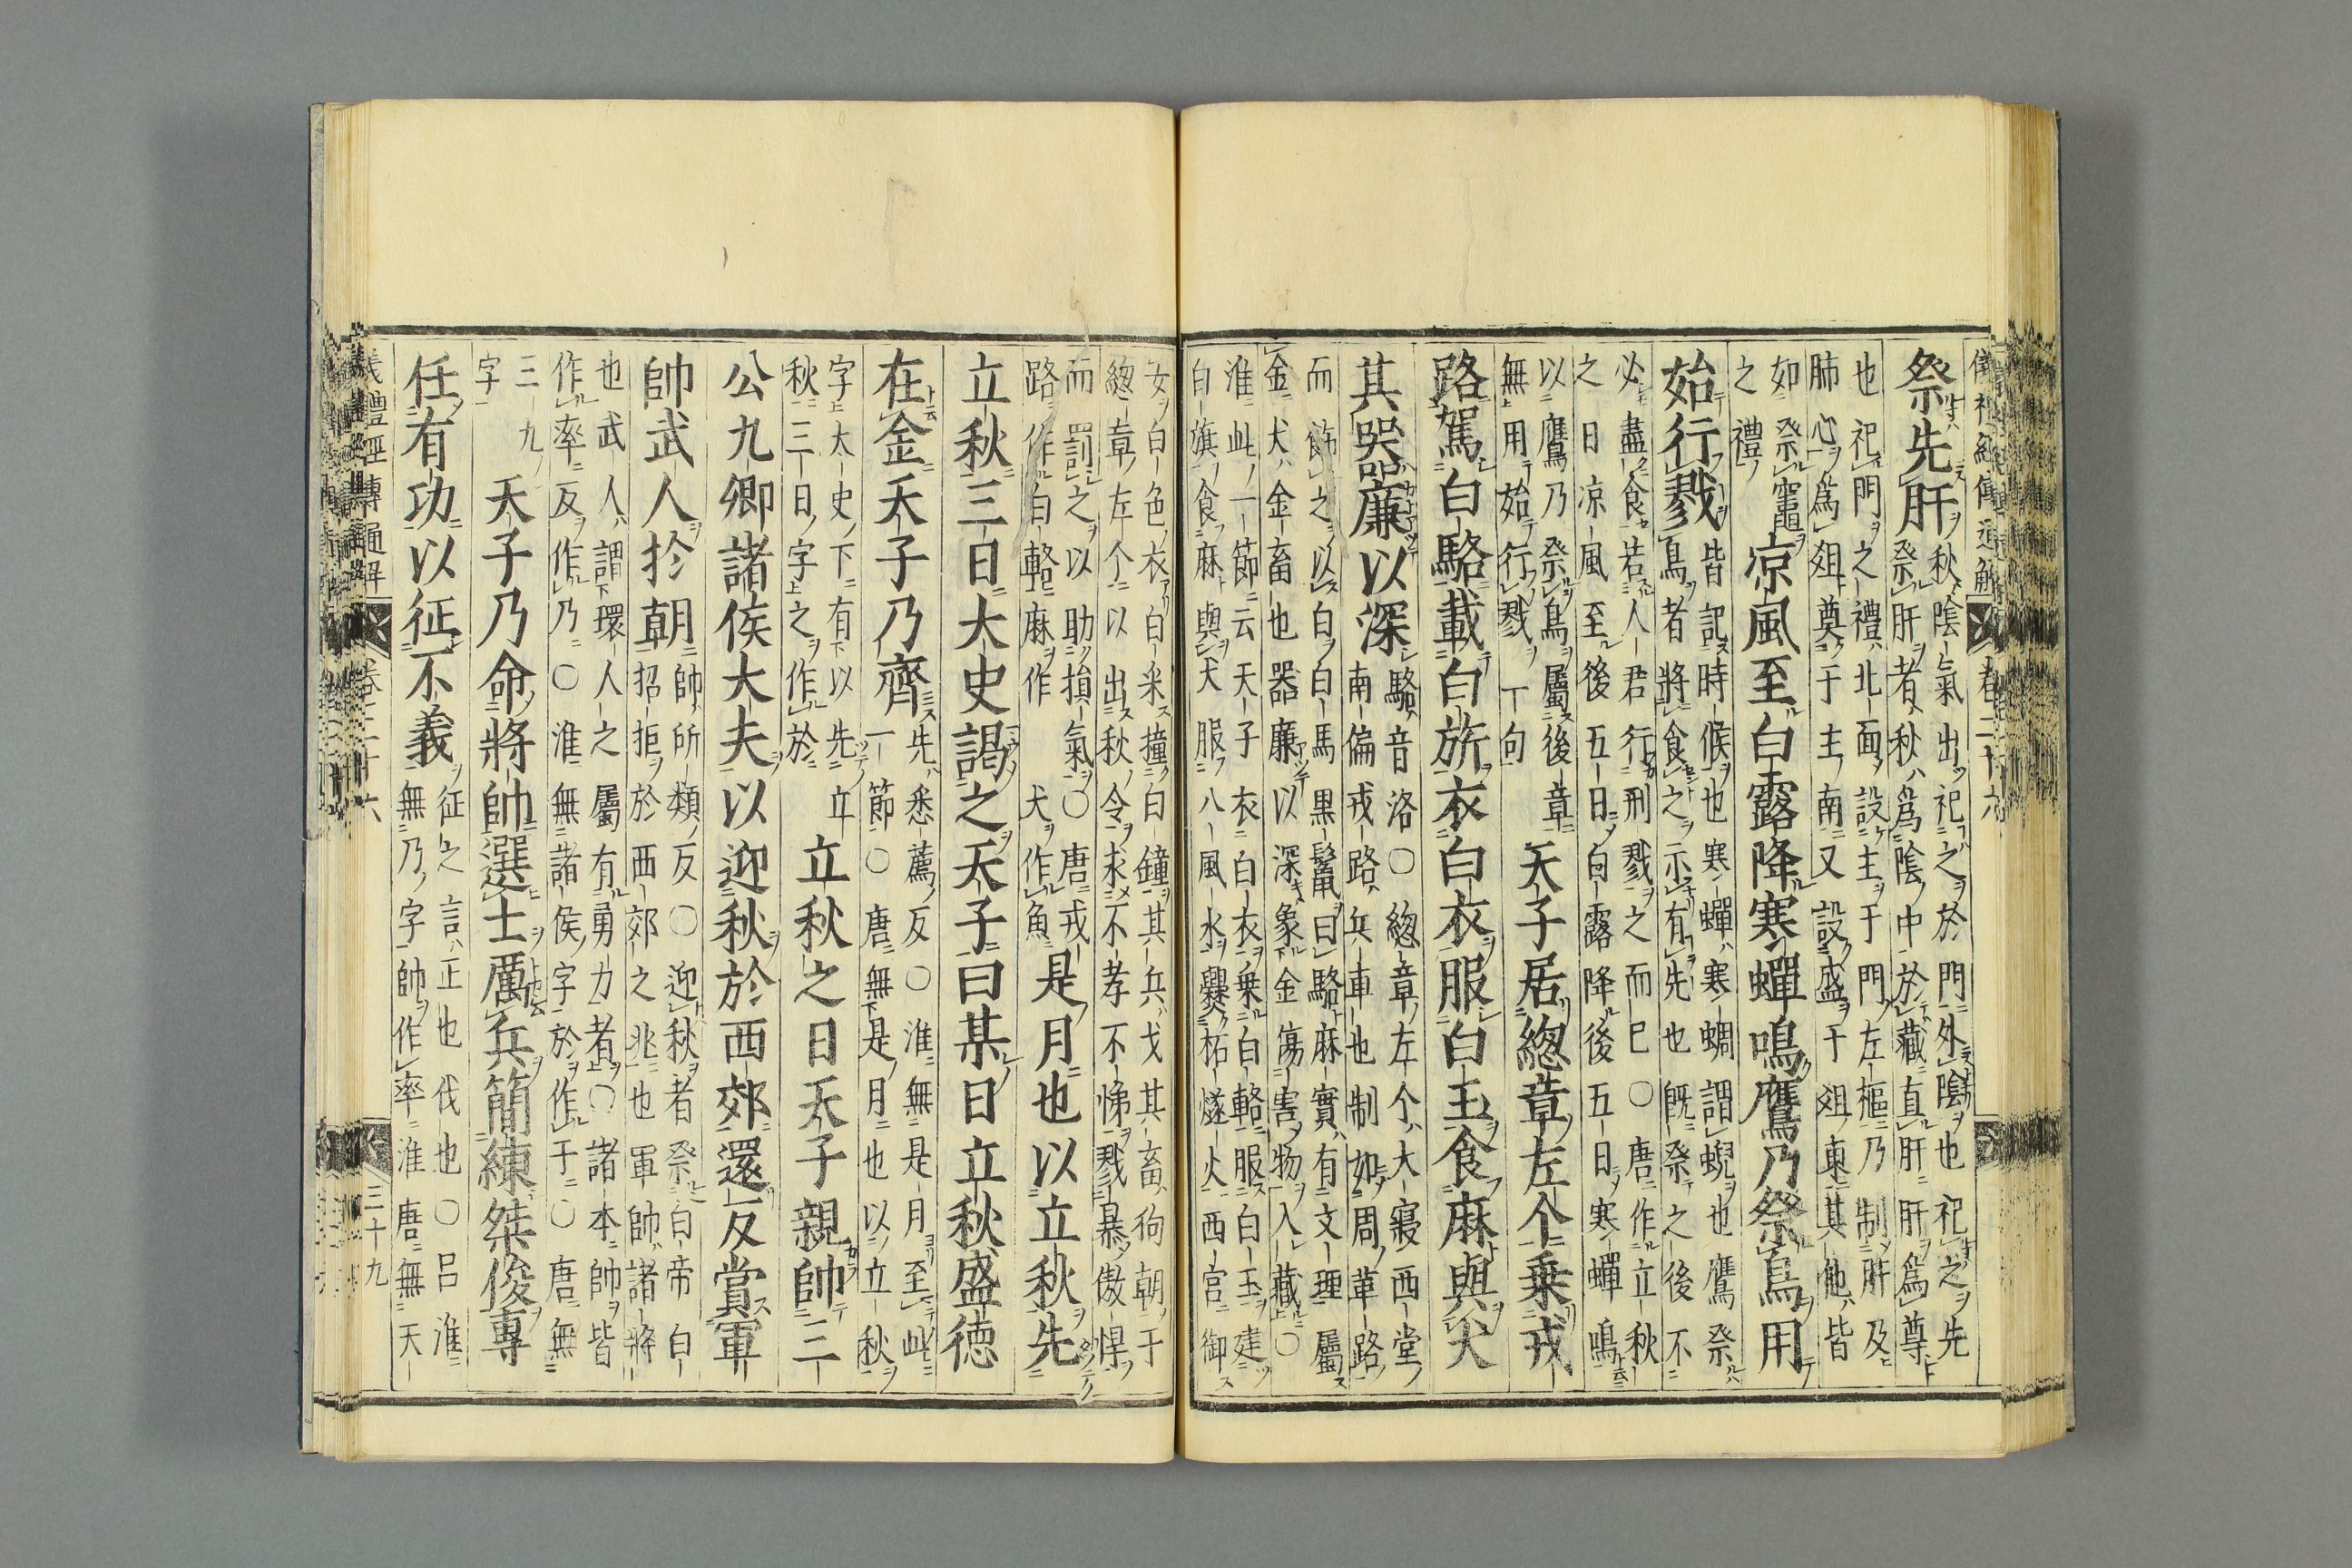 祭先肝秋陰氣出祀之於門外陰也祀之先
祭肝者秋爲陰中於藏直肝肝爲尊
也祀門之禮北面設主于門左樞乃制肝及
肺心爲俎奠于主南又設盛于俎東其他皆
如祭竈
之禮
凉風至白露降寒蟬鳴鷹乃祭鳥用
始行戮皆記時候也寒蟬寒蜩謂蜺也鷹祭
鳥者將食之示有先也旣祭之後不
必盡食若人君行刑戮之而已○唐作立秋
之日凉風至後五日白露降後五日寒蟬鳴
以鷹乃祭鳥屬後章
無用始行戮丁向
天子居緫章左个乗戎
路駕白駱載白旂衣白衣服白玉食麻與犬
其器廉以深駱音洛○緫章左个大寢西堂
南偏戎路兵車也制如周革路
而飾之以白白馬黒鬣曰駱麻實有文理屬
金犬金畜也器廉以深象金傷害物入藏○
淮此一節云天子衣白衣乗白輅服白玉建
白旗食麻與犬服八風水爨柘燧火西宫御
女白色衣白采撞白鐘其兵戈其畜狗朝于
緫章左个以出秋令求不孝不悌戮暴傲悍
而罰之以助損氣○唐戎
路作白輅麻作犬作魚
是月也以立秋先
立秋三日大史謁之天子曰某日立秋盛徳
在金天子乃齊先悉薦反○淮無是月至此
一節○唐無是月也以立秋
字太史下有以先立
秋三日字之作於
立秋之日天子親帥三
公九卿諸侯大夫以迎秋於西郊還反賞軍
帥武人於朝帥所類反○迎秋者祭白帝白
招拒於西郊之兆也軍帥諸將
也武人謂環人之屬有勇力者○諸本帥皆
作率反作乃○淮無諸侯字於作于○唐無
三九
字
天子乃命將帥選士厲兵簡練桀俊專
任有功以征不義征之言正也伐也○呂淮
無乃字帥作率淮唐無天
儀禮經傳通解
卷二十六
三十九